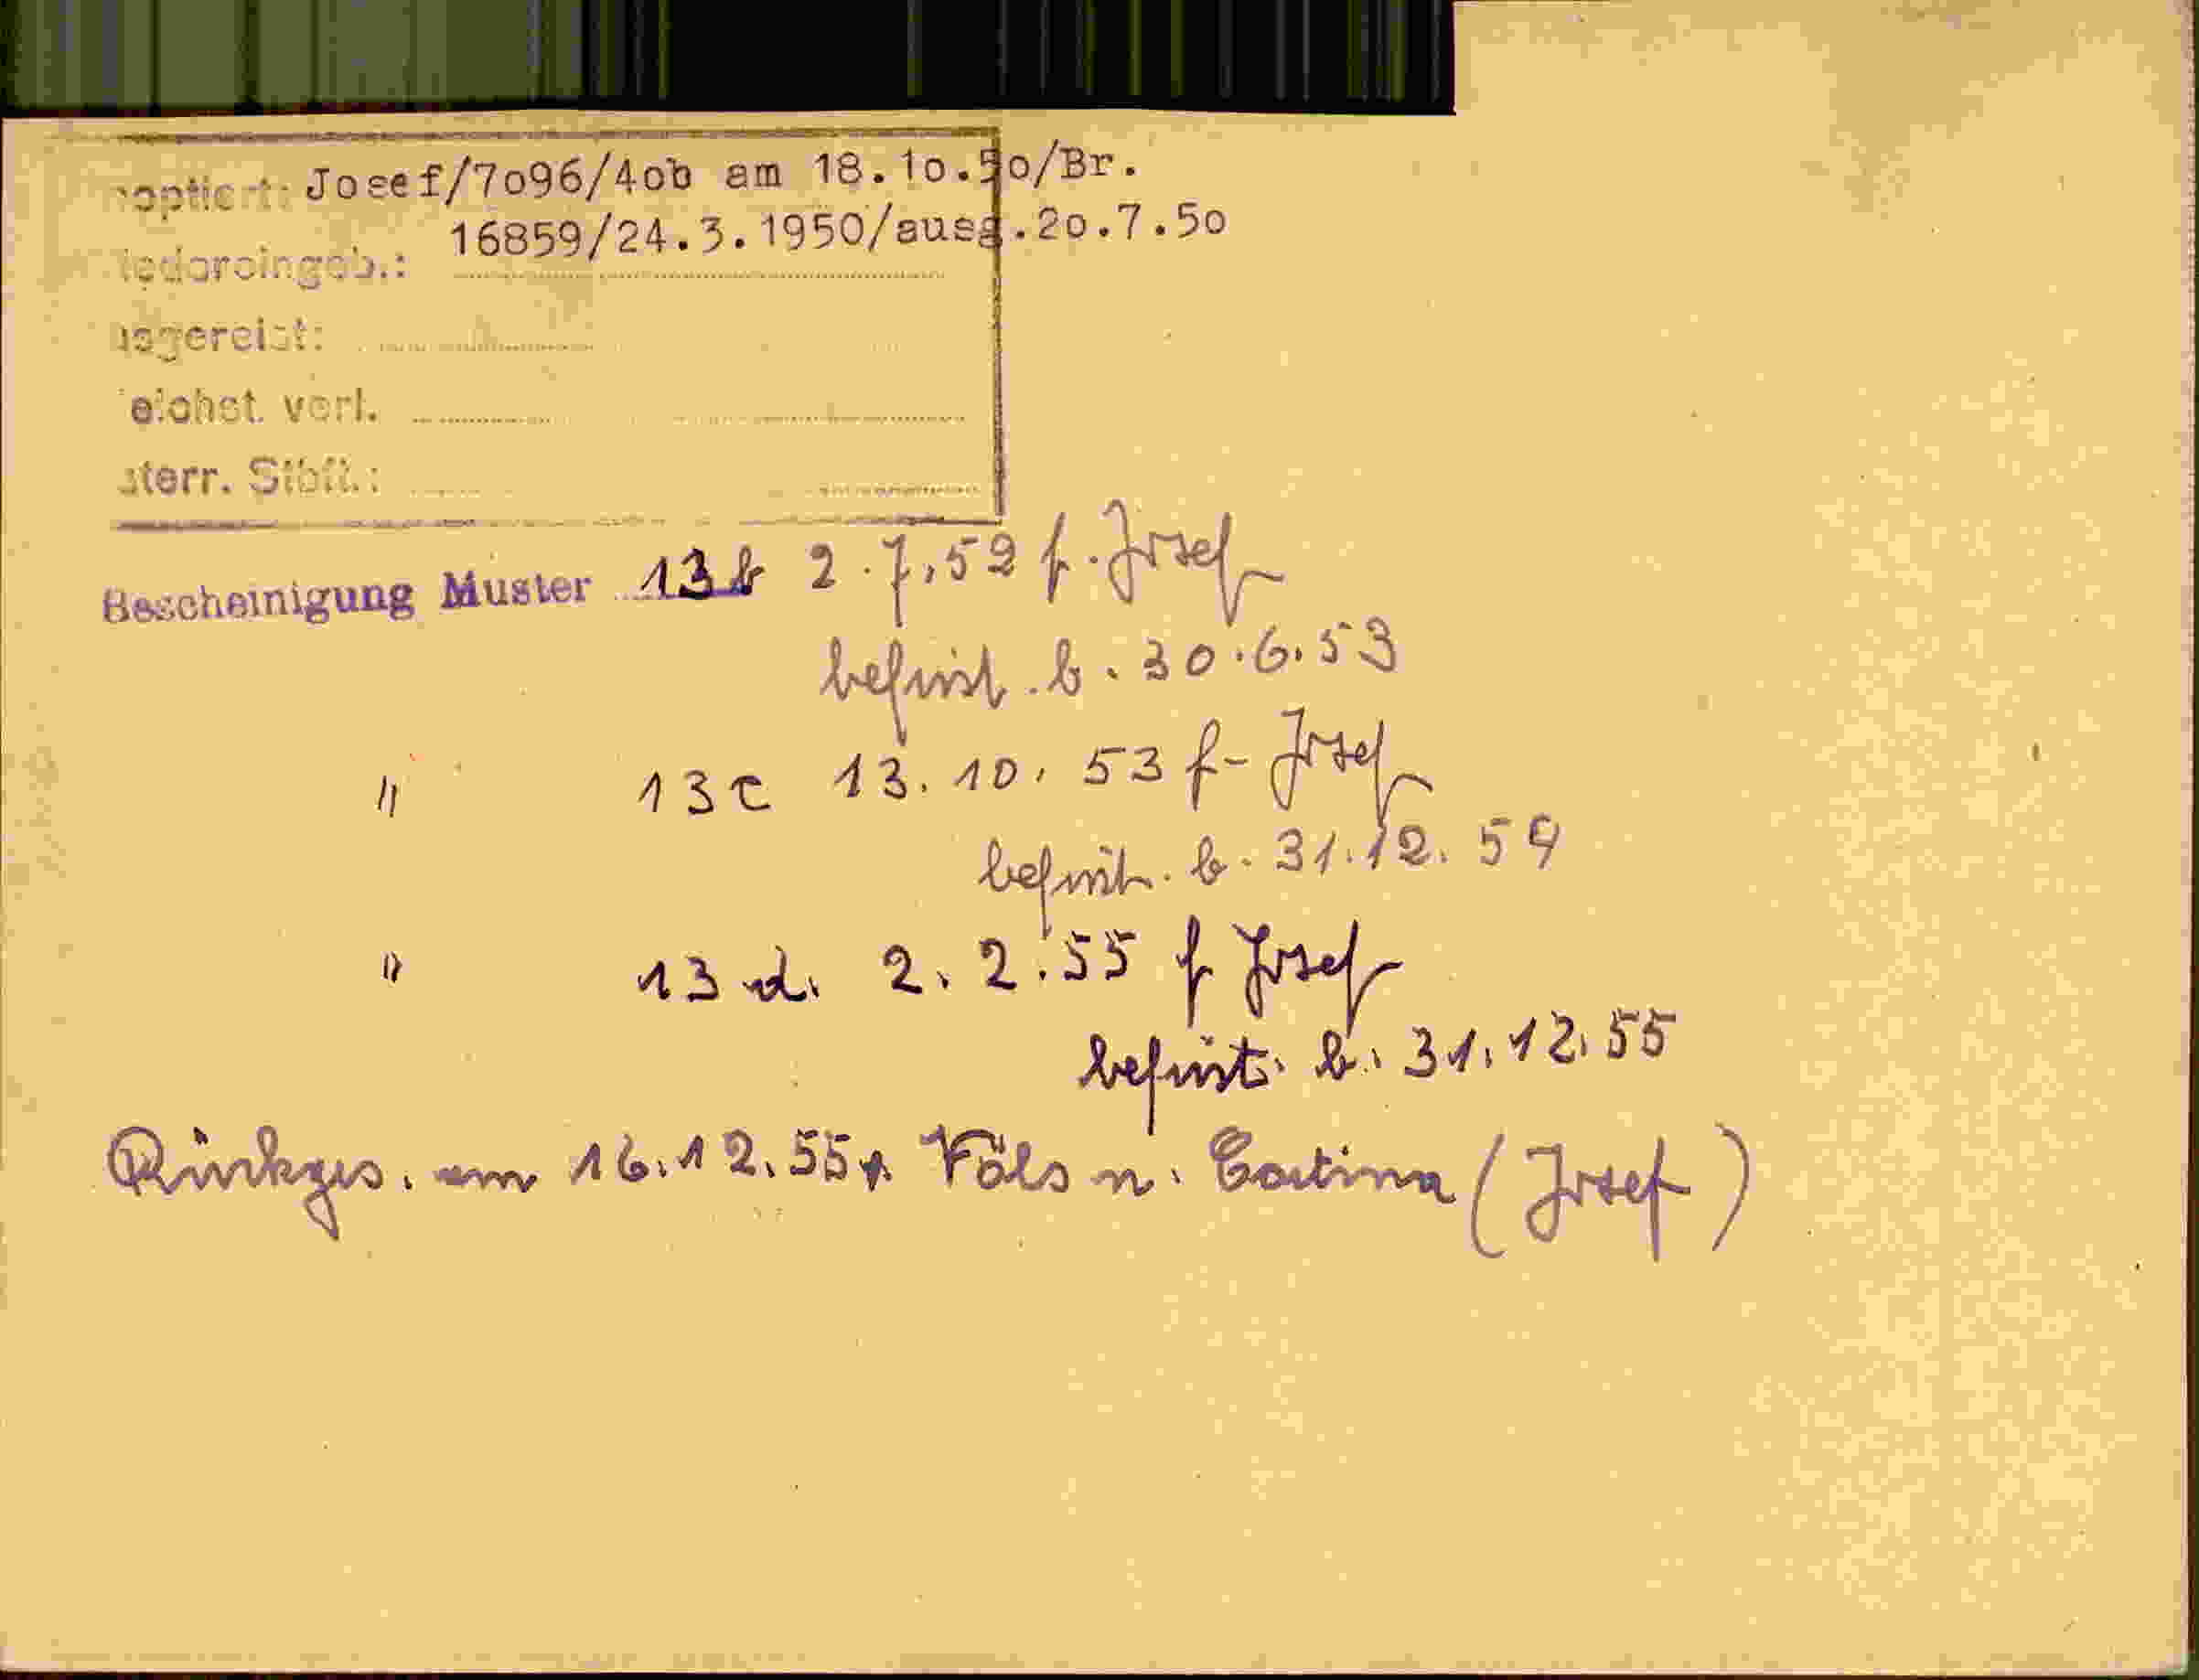 optiert: Josef/7o96/4ob am 18.1o.5o/Br.
16859/24.3.1950/ausg.2o.7.5o
iedereingeb.:
sgereist:
eichst. verl.
sterr. Stbft.:
Bescheinigung Muster 13b 2.7.52 f. Josef
befrist. b. 30.6.53
" 13c 13.10.53 f. Josef
befrist. b. 31.12.54
" 13d. 2.2.55 f Josef
befrist. b. 31.12.55
Rückges. am 16.12.55 v. Völs n. Cortina (Josef)